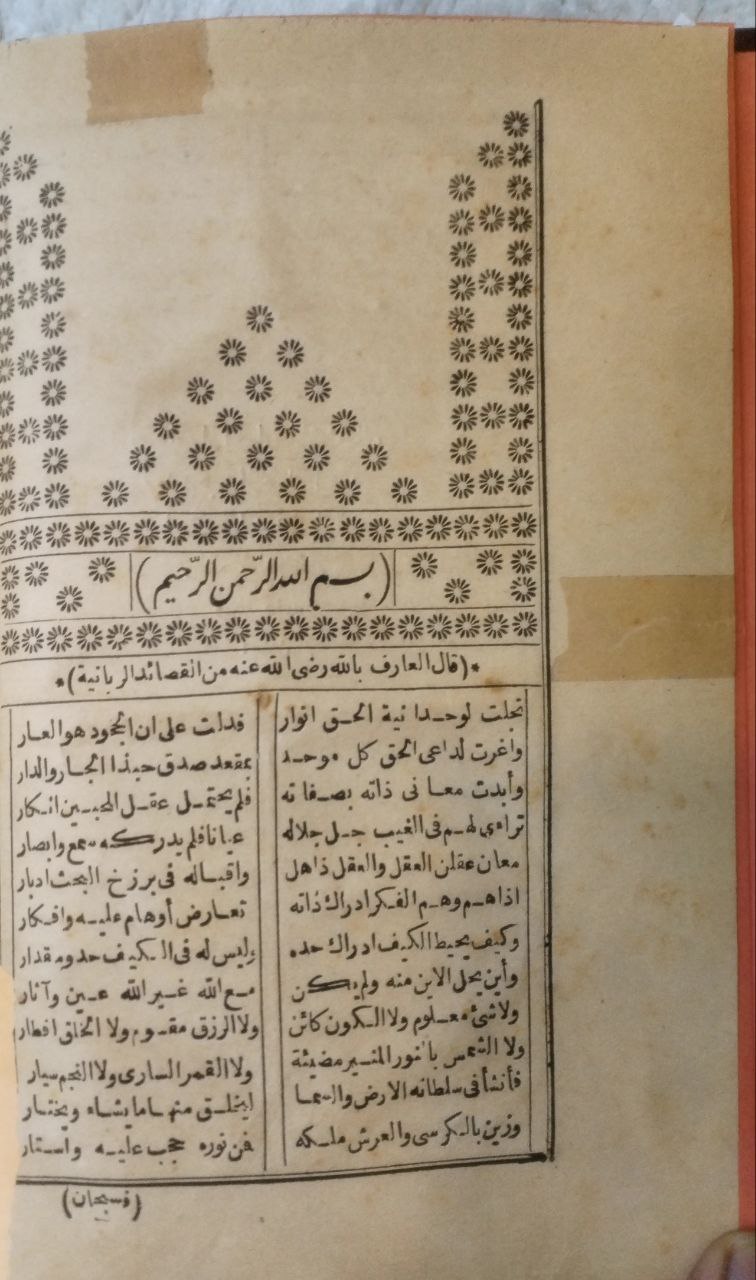 (بسم الله الرّحمن الرّحيم)
*(قال العارف بالله رضى الله عنه من القصائد الربانية)*
تجلت لوحدانية الحق انوار فدلت على ان الجحود هو العار
واغرت لداعى الحق كل موحد بمقعد صدق حبذا الجار والدار
وأبدت معانى ذاته بصفاته فلم يحتمل عقل المحبين انكار
تراءى لهم فى الغيب جل جلاله عيانا فلم يدركه سمع وابصار
معان عقلن العقل والعقل ذاهل واقباله فى برزخ البحث ادبار
اذا هم وهم الفكر ادراك ذاته تعارض أوهام عليه وافكار
وكيف يحيط الكيف ادراك حده وليس له فى الكيف حد ومقدار
وأين يحل الاين منه ولم يكن مع الله غير الله عين وآثار
ولا شئ معلوم ولا الكون كائن ولا الرزق مقسوم ولا الخلق افطار
ولا الشمس بالنور المنير مضيئة ولا القمر السارى ولا النجم سيار
فأنشأ فى سلطانه الارض والسما ليخلق منها ما يشاء ويختار
وزين بالكرسى والعرش ملكه فمن نوره حجب عليه واستار
(فسبحان)